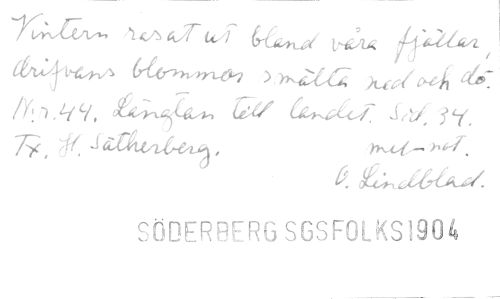 Vintern rasat ut bland våra fjällar,
drifvans blommor smälta ned och dö.
N:r. 44. Längtan till landet. Sid. 34.
Tx. H. Sätherberg. mel-not.
O. Lindblad.
SÖDERBERG SGSFOLKS1904